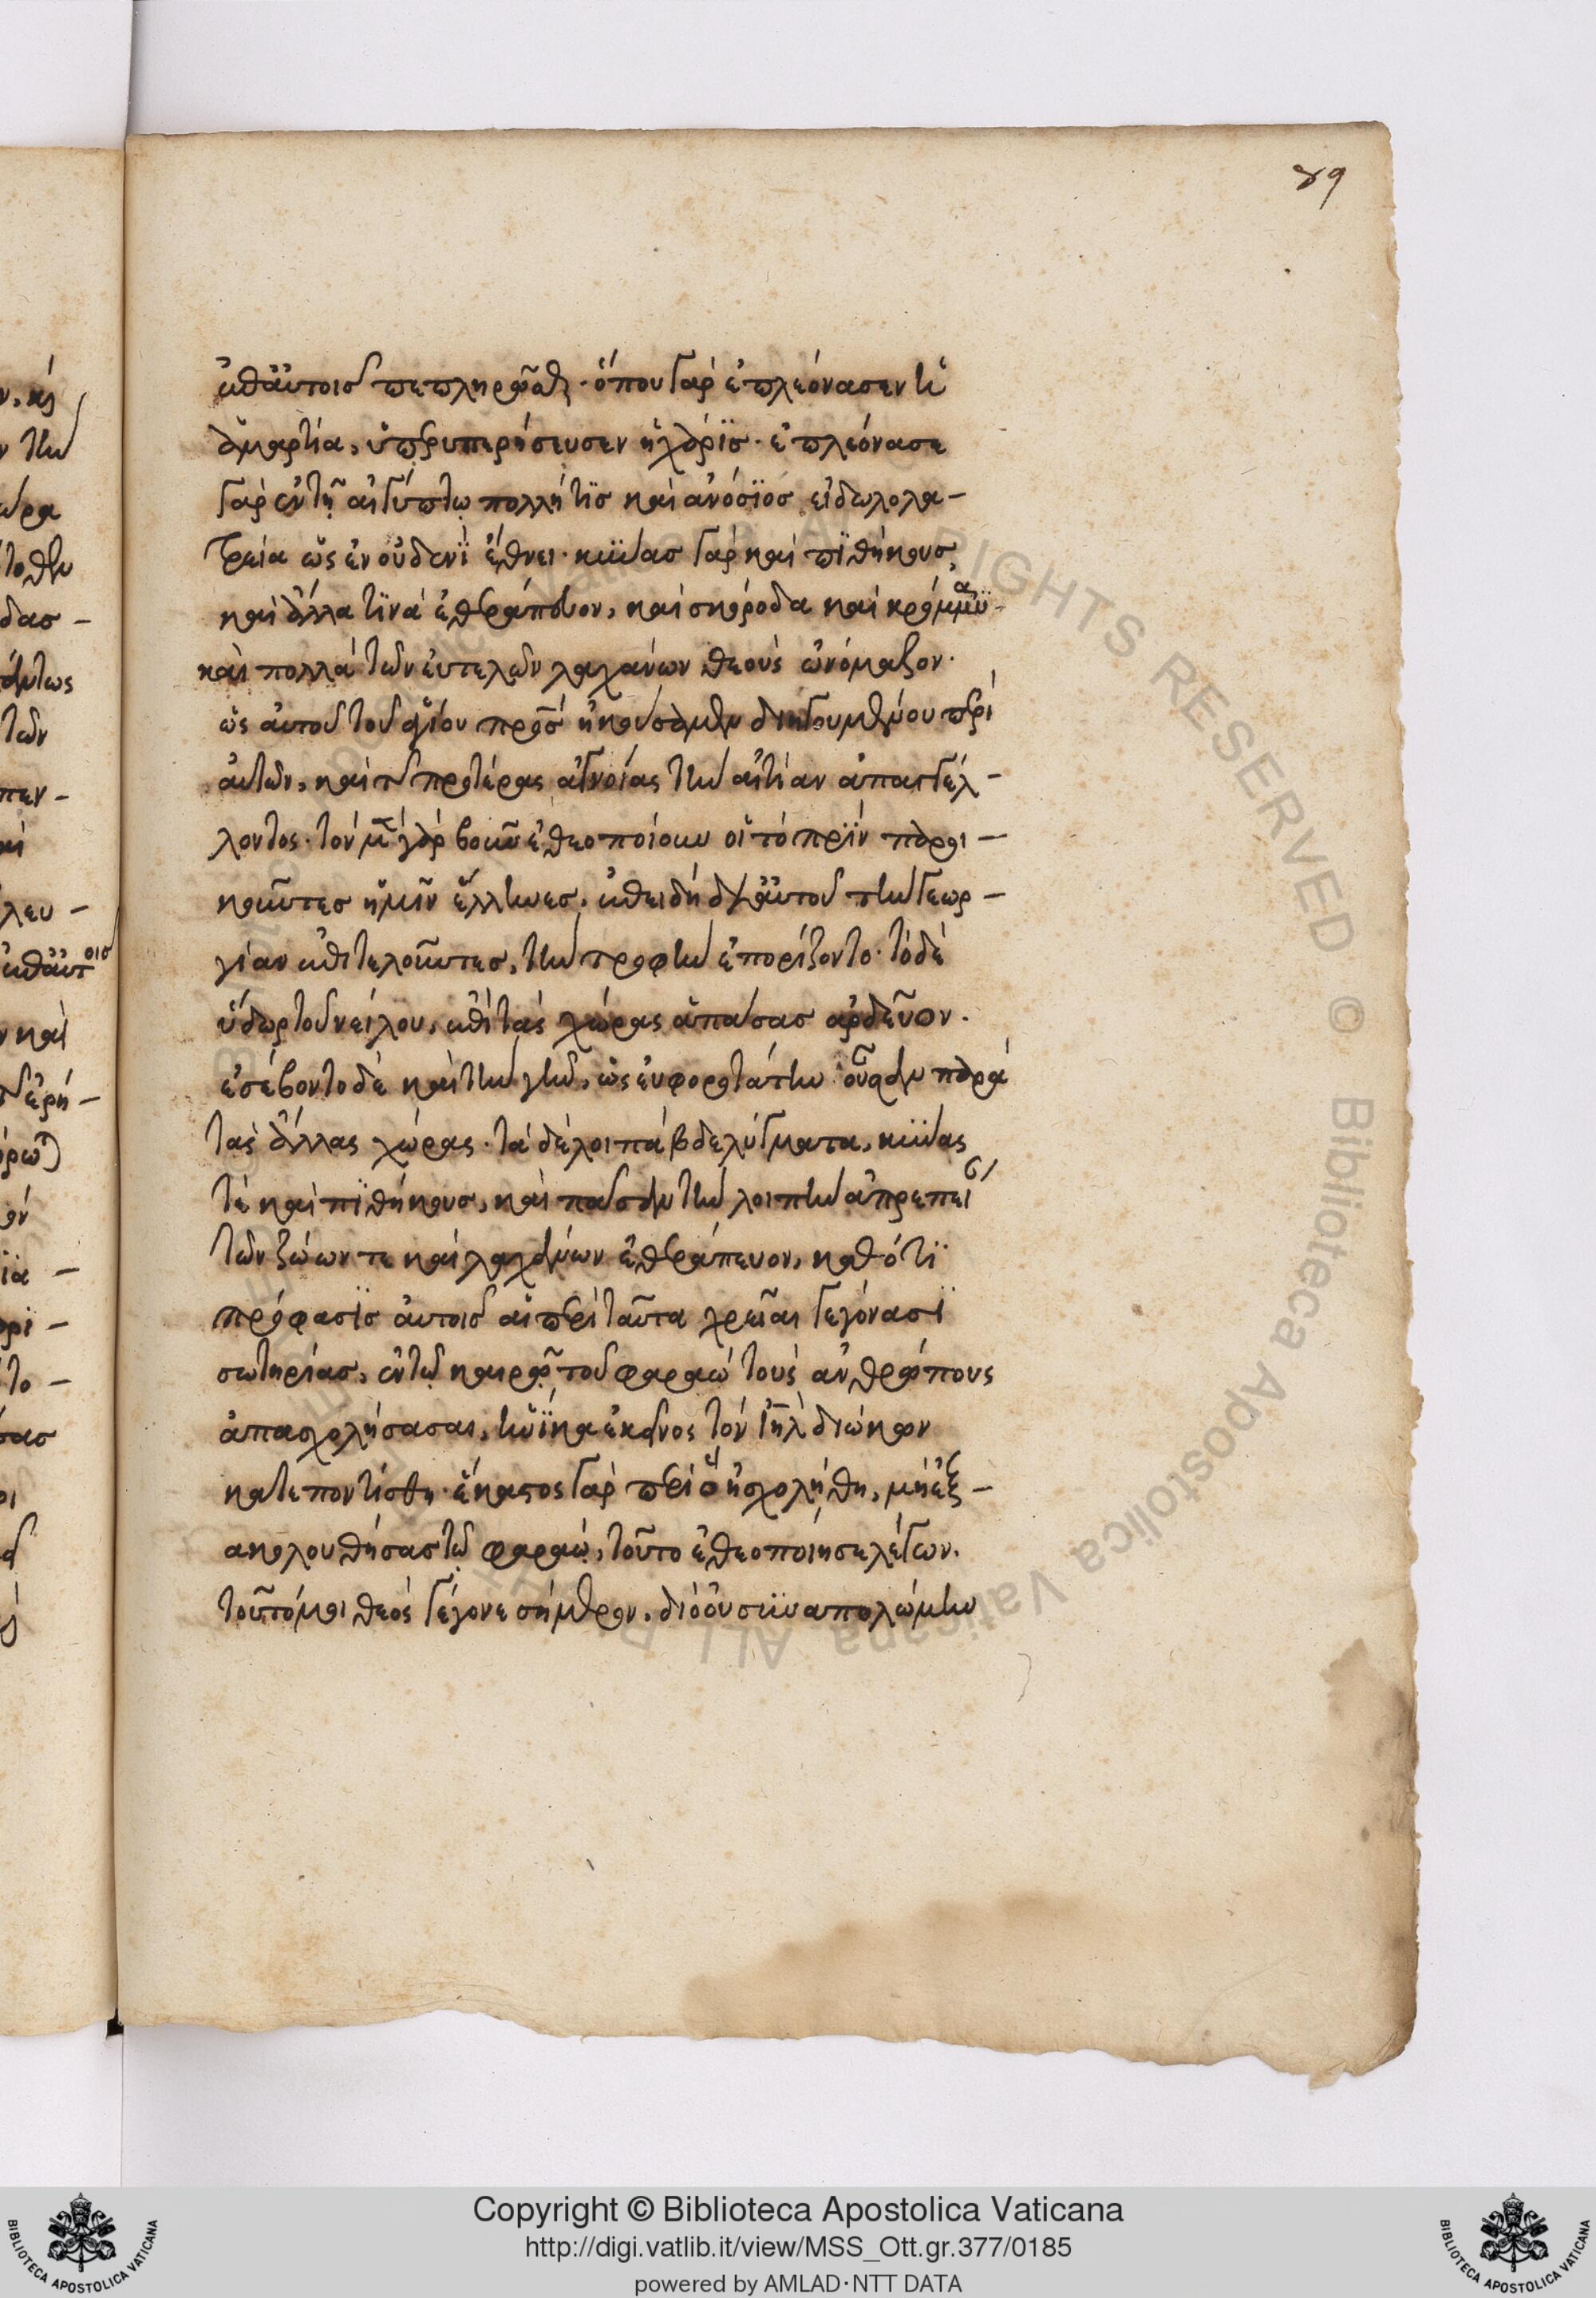 89
ἐπ' αὐτοῖς πεπλήρωται· ὅπου γὰρ ἐπλεόνασεν ἡ
ἁμαρτία, ὑπερεπερίσευσεν ἡ χάρϊς· ἐπλεόνασε
γὰρ ἐν τῇ αἰγύπτω πολλή τϊς καὶ ἀνόσϊος εἰδωλολα-
τρεία ὡς ἐν οὐδενϊ ἔθνει· κύνας γὰρ καὶ πϊθήκους,
καὶ ἄλλα τϊνὰ ἐθεράπευον, καὶ σκόροδα καὶ κρόμμυα
καὶ πολλὰ τῶν εὐτελῶν λαχάνων θεοὺς ὠνόμαζον·
ὡς αὐτοῦ τοῦ ἁγίου πρς ἠκούσαμεν διηγουμένου περὶ
αὐτῶν, καὶ τῆς προτέρας ἀγνοίας τὴν αἰτίαν ἀπαγγέλ-
λοντος· τὸν μὲν γὰρ βοῦν ἐθεοποίουν οἱ τὸ πρϊν παροι-
κοῦντες ἡμῖν ἕλληνες, ἐπειδὴ δι' αὐτοῦ τὴν γεωρ-
γίαν ἐπιτελοῦντες, τὴν τροφὴν ἐπορίζοντο· τὸ δὲ
ὕδωρ τοῦ νείλου, ἐπὶ τὰς χώρας ἁπάσας ἀρδεῦον·
ἐσέβοντο δὲ καὶ τὴν γῆν, ὡς εὐφοροτάτην οὖσαν παρὰ
τὰς ἄλλας χώρας· τὰ δὲ λοιπὰ βδελύγματα, κύνας
τὲ καὶ πϊθήκους, καὶ πᾶσαν τὴν λοιπὴν ἀπρέπει
τῶν ζώων τε καὶ λαχάνων ἐθεράπευον, καθότϊ
πρόφασϊς αὐτοῖς αἱ περὶ ταῦτα χρεῖαι γεγόνασϊ
σωτηρίας, ἐν τῷ καιρῷ τοῦ φαραὼ τοὺς ἀνθρώπους
ἀπασχολήσασαι, ἡνϊκα ἐκεῖνος τὸν ἰηλ διώκων
κατεποντίσθη· ἕκαστος γὰρ περὶ ὃ ἠσχολήθη, μὴ ἐξ-
ακολουθήσας τῷ φαραώ, τοῦτο ἐθεοποίησε λέγων·
τοῦτό μοι θεὸς γέγονε σήμερον, διὸ οὐ συναπολώμην
Copyright © Biblioteca Apostolica Vaticana
http://digi.vatlib.it/view/MSS_Ott.gr.377/0185
powered by AMLAD·NTT DATA